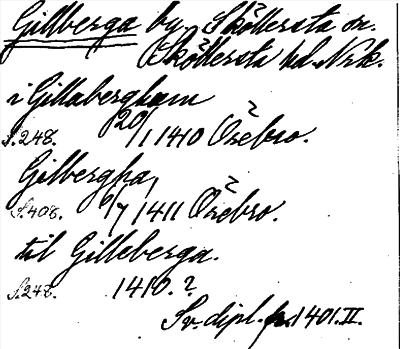 Gillberga by, Sköllersta sn.
Sköllersta hd. Nrk.
i Gillabergham
S. 248. 20/1 1410 Örebro.
Gilbergha,
S. 408. 6/7 1411 Örebro.
til Gilleberga.
S. 248. 1410.?
Sv. dipl. fr. 1401. II.